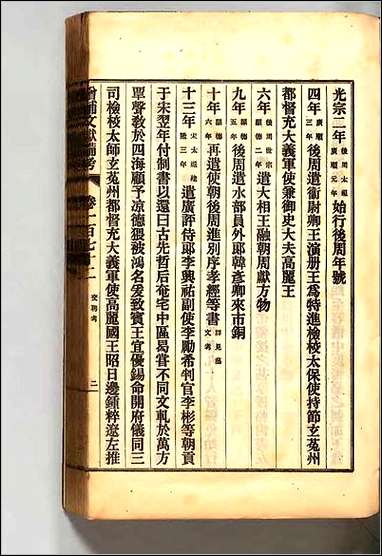 光宗二年後周太祖廣順元年始行後周年號
四年廣順三年後周遣衛尉卿王演册王爲特進檢校太保使持節玄菟州
都督充大義軍使兼御史大夫高麗王
六年後周世宗顯德二年遣大相王融朝周獻方物
九年顯德五年後周遣水部員外郎韓彦卿來市銅
十年顯德六年再遣使朝後周進別序孝經等書詳見藝文考
十三年宋太祖建隆三年遣廣評侍郎李興祐副使李勵希判官李彬等朝貢
于宋翌年付制書以還曰古先哲后奄宅中區曷嘗不同文軌於萬方
覃聲敎於四海顧予凉德猥被鴻名爰致賓王宜優錫命開府儀同三
司檢校太師玄菟州都督充大義軍使高麗國王昭日邊鍾粹遼左推
增補文獻備考 卷一百七十二 交聘考 二